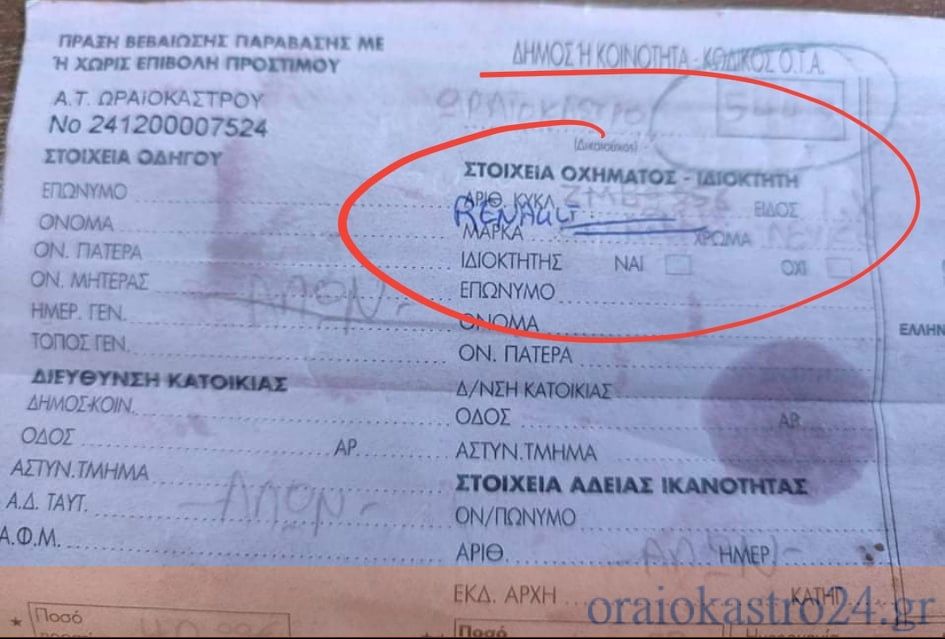 ΠΡΑΞΗ ΒΕΒΑΙΩΣΗΣ ΠΑΡΑΒΑΣΗΣ ΜΕ
Ή ΧΩΡΙΣ ΕΠΙΒΟΛΗ ΠΡΟΣΤΙΜΟΥ
Α.Τ. ΩΡΑΙΟΚΑΣΤΡΟΥ
Νο 241200007524
ΣΤΟΙΧΕΙΑ ΟΔΗΓΟΥ
ΕΠΩΝΥΜΟ
ΟΝΟΜΑ
ΟΝ. ΠΑΤΕΡΑ
ΟΝ. ΜΗΤΕΡΑΣ
ΑΠΩΝ
ΗΜΕΡ. ΓΕΝ.
ΤΟΠΟΣ ΓΕΝ.
ΔΙΕΥΘΥΝΣΗ ΚΑΤΟΙΚΙΑΣ
ΔΗΜΟΣ-ΚΟΙΝ.
ΟΔΟΣ ΑΡ.
ΑΣΤΥΝ.ΤΜΗΜΑ
Α.Δ. ΤΑΥΤ.
- ΑΠΩΝ -
Α.Φ.Μ.
* Ποσό
ΔΗΜΟΣ Ή ΚΟΙΝΟΤΗΤΑ - ΚΩΔΙΚΟΣ Ο.Τ.Α.
ΩΡΑΙΟΚΑΣΤΡΟ
ΣΤΟΙΧΕΙΑ ΟΧΗΜΑΤΟΣ - ΙΔΙΟΚΤΗΤΗ
ΑΡΙΘ. ΚΥΚΛ. ΕΙΔΟΣ
RENAULT
ΜΑΡΚΑ ΧΡΩΜΑ
ΙΔΙΟΚΤΗΤΗΣ ΝΑΙ ΟΧΙ
ΕΠΩΝΥΜΟ
ΟΝΟΜΑ
ΕΛΛΗΝ
ΟΝ. ΠΑΤΕΡΑ
Δ/ΝΣΗ ΚΑΤΟΙΚΙΑΣ
ΟΔΟΣ ΑΡ.
ΑΣΤΥΝ.ΤΜΗΜΑ
ΣΤΟΙΧΕΙΑ ΑΔΕΙΑΣ ΙΚΑΝΟΤΗΤΑΣ
ΟΝ/ΠΩΝΥΜΟ
ΑΡΙΘ. - ΑΠΩΝ - ΗΜΕΡ.
ΕΚΔ. ΑΡΧΗ ΚΑΤΗΓ.
oraiokastro24.gr
Ποσό